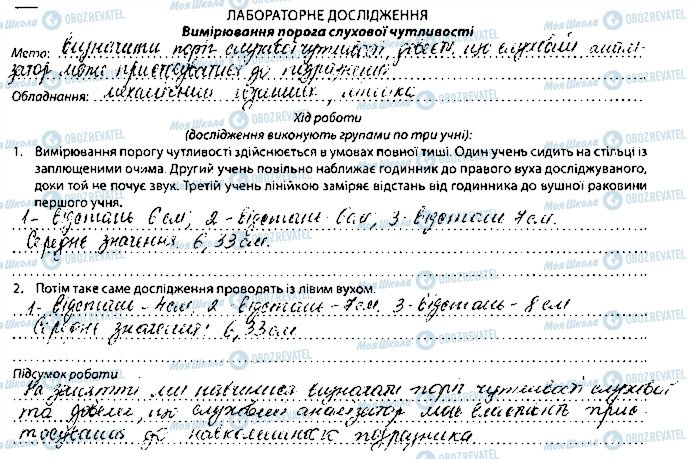 ЛАБОРАТОРНЕ ДОСЛІДЖЕННЯ
Вимірювання порога слухової чутливості
Мета: визначити поріг слухової чутливості, довести, що слуховий аналі-
затор може пристосуватися до подразнень
Обладнання: механічний годинник, лінійка
Хід роботи
(дослідження виконують групами по три учні):
1. Вимірювання порогу чутливості здійснюється в умовах повної тиші. Один учень сидить на стільці із
заплющеними очима. Другий учень повільно наближає годинник до правого вуха досліджуваного,
доки той не почує звук. Третій учень лінійкою заміряє відстань від годинника до вушної раковини
першого учня.
1- відстань 6 см, 2 - відстань 6 см, 3 - відстань 7 см.
Середнє значення 6,33 см.
2. Потім таке саме дослідження проводять із лівим вухом.
1- відстань - 4 см, 2 - відстань - 7 см 3 - відстань - 8 см
Середнє значення: 6,33 см
Підсумок роботи
На занятті ми навчилися визначати поріг чутливості слухової
та довели, що слуховий аналізатор має властивість прис-
тосування до навколишніх подразника
Моя Школа OBOZREVATEL